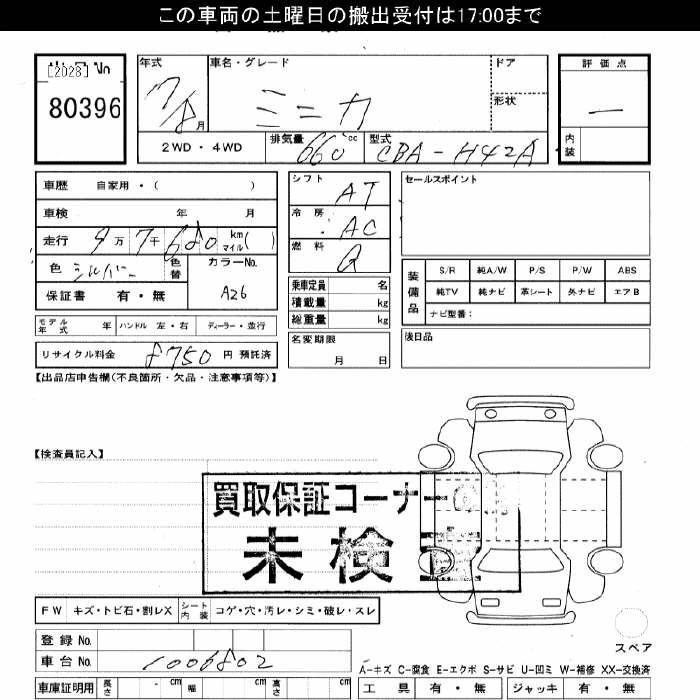 この車両の土曜日の搬出受付は17:00まで
[2028] No
80396
年式
17/8月
車名・グレード
ミニカ
ドア
形状
評価点
—
内装
2WD・4WD
排気量 660 cc
型式 CBA-H42A
車歴 自家用・( )
車検 年 月
走行 9万7千680 km マイル( )
色 シルバー 色替
カラーNo. A26
保証書 有・無
モデル年式 年 ハンドル 左・右 ディーラー・並行
リサイクル料金 8750 円 預託済
シフト AT
冷房 AC
燃料 G
乗車定員 名
積載量 kg
総重量 kg
名変期限
月 日
セールスポイント
装備品
S/R 純A/W P/S P/W ABS
純TV 純ナビ 革シート 外ナビ エアB
ナビ型番:
後日品
【出品店申告欄(不良箇所・欠品・注意事項等)】
【検査員記入】
買取保証コーナー
未検
FW キズ・トビ石・割レX シート内装 コゲ・穴・汚レ・シミ・破レ・スレ
登録No.
車台No. 1006802
スペア
A-キズ C-腐食 E-エクボ S-サビ U-凹ミ W-補修 XX-交換済
車庫証明用 長さ cm 幅 cm 高さ cm
工具 有・無 ジャッキ 有・無